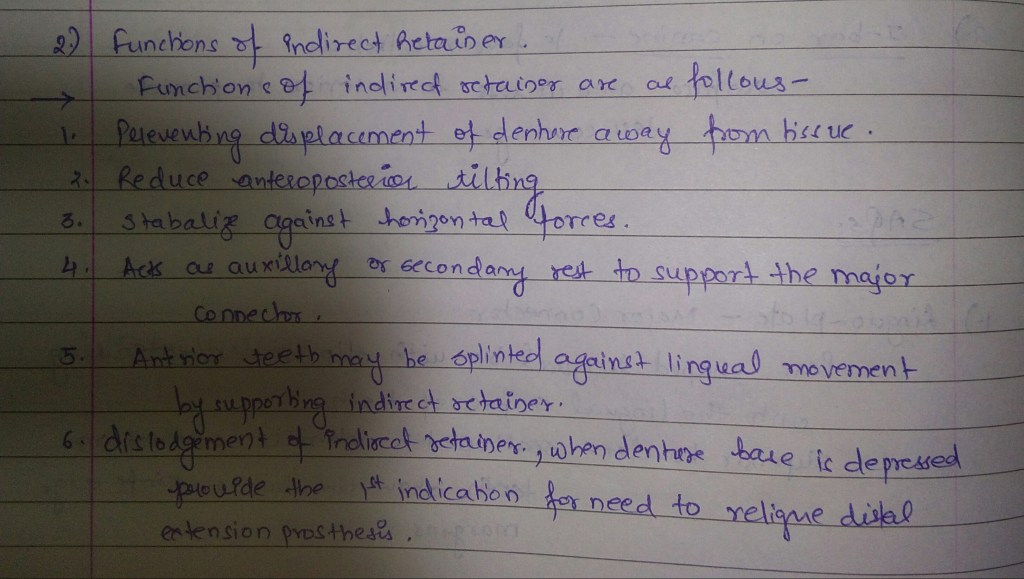 2) Functions of Indirect Retainer.
Functions of indirect retainer are as follows -
→
1. Preventing displacement of denture away from tissue.
2. Reduce anteroposterior tilting
3. Stabalize against horizontal forces.
4. Acts as auxillary or secondary rest to support the major
connector.
5. Antrior teeth may be splinted against lingual movement
by supporting indirect retainer.
6. dislodgement of Indirect retainer, when denture base is depressed
provide the 1st indication for need to religne distal
extension prosthesis.